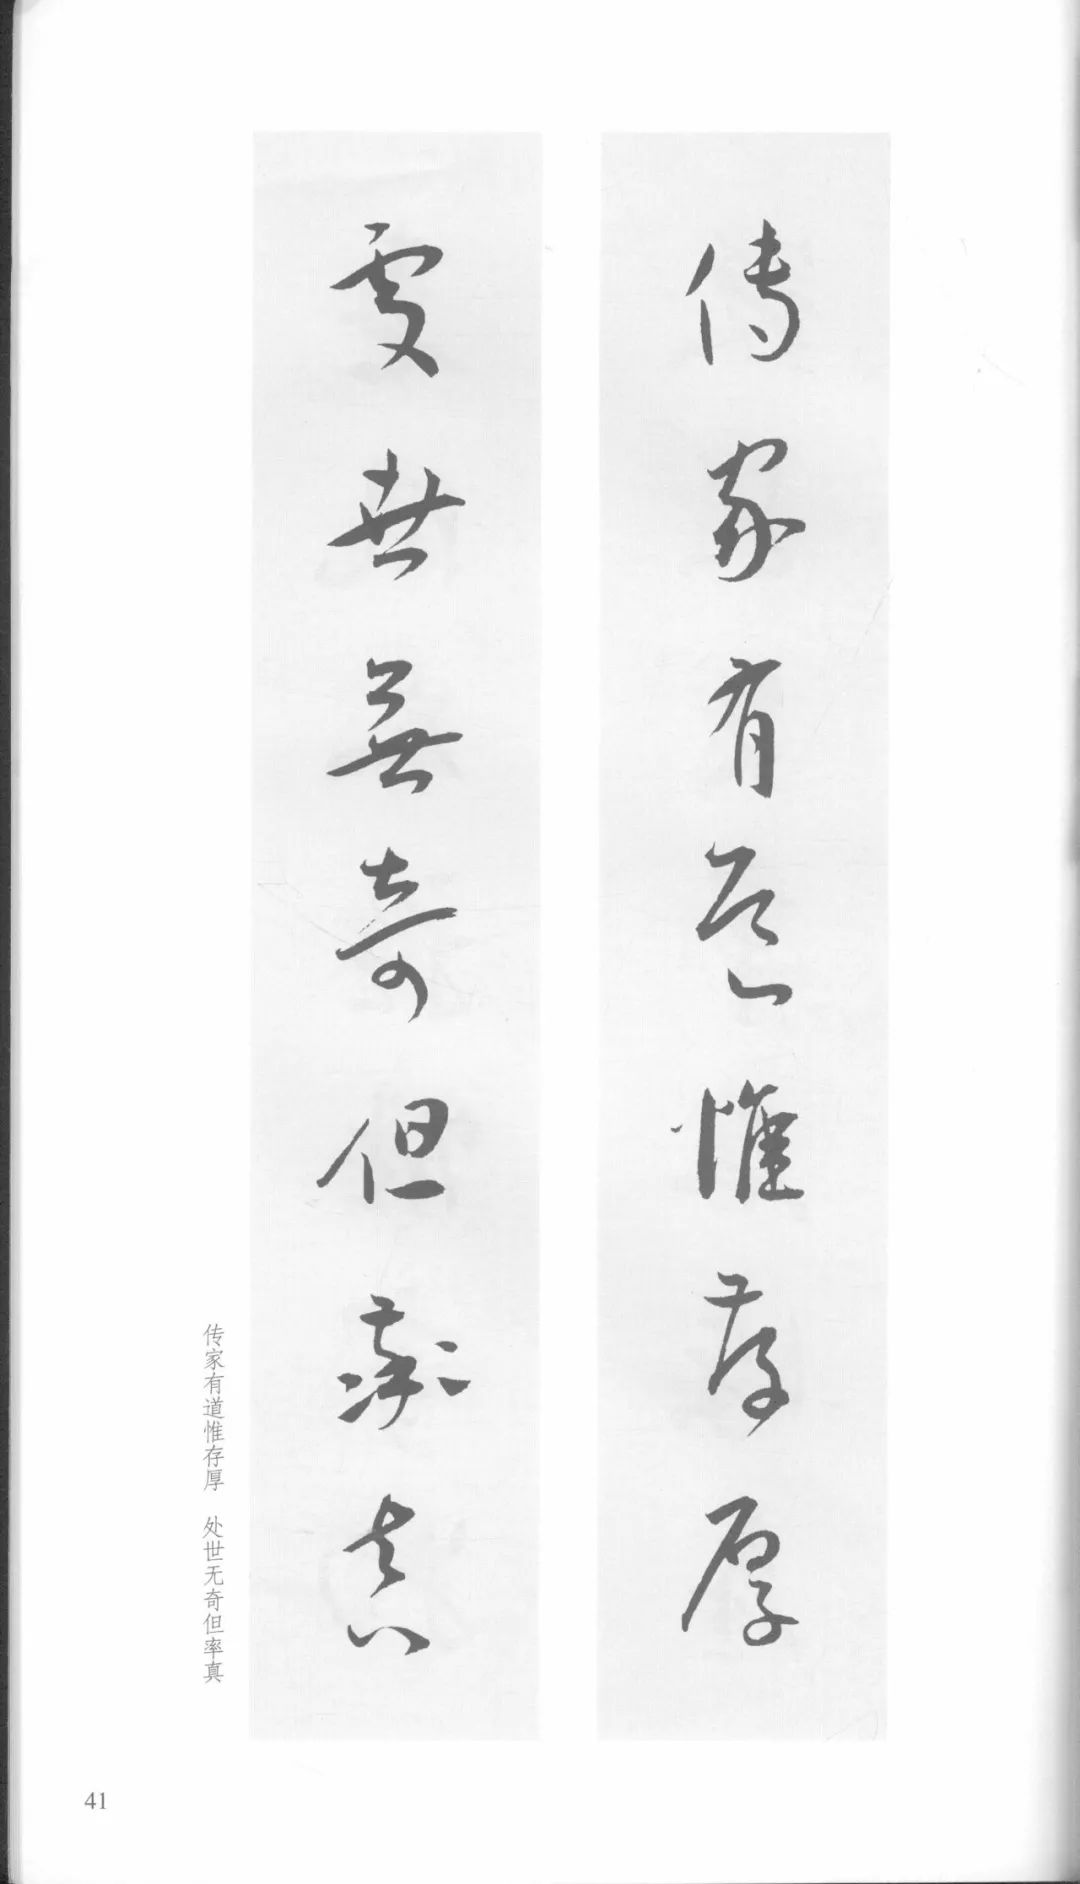 傳家有道惟存厚
處世無奇但率真
传家有道惟存厚 处世无奇但率真
41